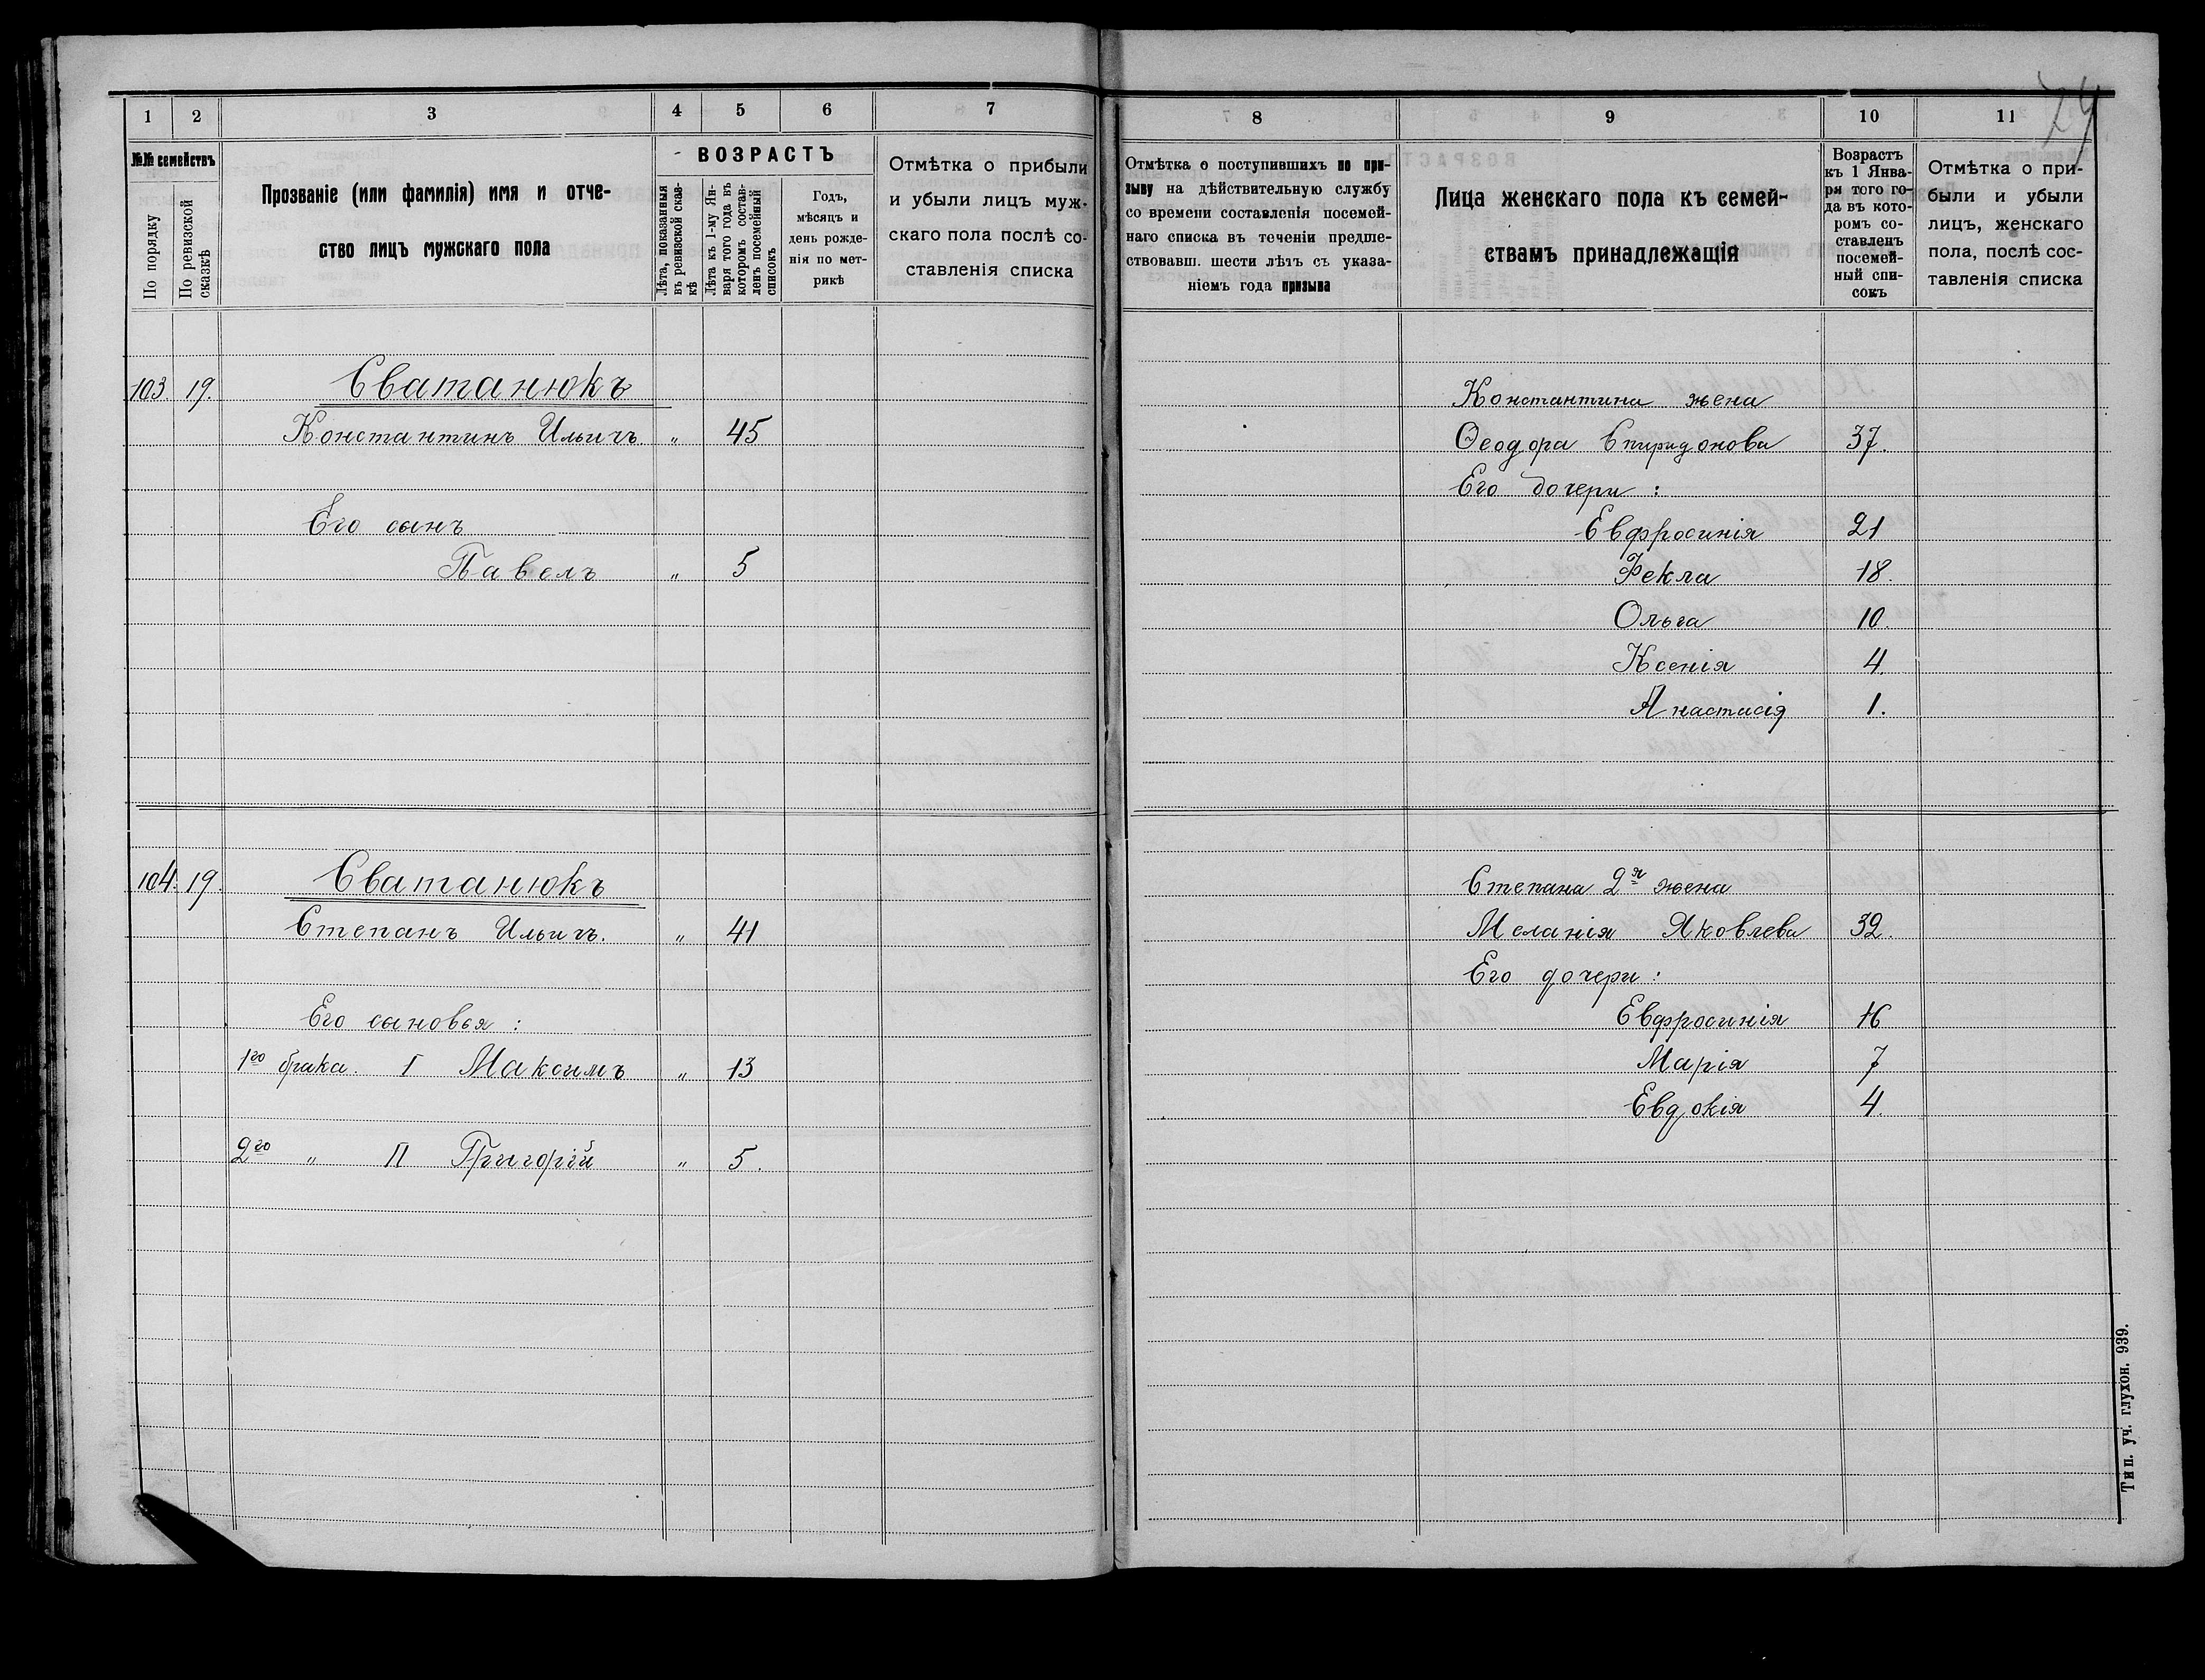 74
1 2 3 4 5 6 7
№№ семействъ
По порядку
По ревизской сказкѣ
Прозваніе (или фамилія) имя и отче-
ство лицъ мужскаго пола
ВОЗРАСТЪ
Лѣта, показанныя
въ ревизской сказ-
кѣ
Лѣта къ 1-му Ян-
варя того года въ
которомъ состав-
ленъ посемейный
списокъ
Годъ,
мѣсяцъ и
день рожде-
нія по мет-
рикѣ
Отмѣтка о прибыли
и убыли лицъ муж-
скаго пола послѣ со-
ставленія списка
103 19. Сватанюкъ
Константинъ Ильичъ „ 45
Его сынъ
Павелъ „ 5
104. 19. Сватанюкъ
Степанъ Ильичъ. „ 41
Его сыновья :
1го брака. I Максимъ „ 13
2го „ II Григорій „ 5.
8 9 10 11
Отмѣтка о поступившихъ по при-
зыву на дѣйствительную службу
со времени составленія посемей-
наго списка въ теченіи предше-
ствовавш. шести лѣтъ съ указа-
ніемъ года призыва
Лица женскаго пола къ семей-
ствамъ принадлежащія
Возрастъ
къ 1 Янва-
ря того го-
да въ кото-
ромъ со-
ставленъ
посемей-
ный спи-
сокъ
Отмѣтка о при-
были и убыли
лицъ, женскаго
пола, послѣ сос-
тавленія списка
Константина жена
Ѳеодора Спиридонова 37.
Его дочери :
Евфросинія 21
Фекла 18.
Ольга 10.
Ксенія 4.
Анастасія 1.
Степана 2я жена
Меланія Яковлева 32.
Его дочери :
Евфросинія 16
Марія 7
Евдокія 4.
Тип. уч. глухон. 939.